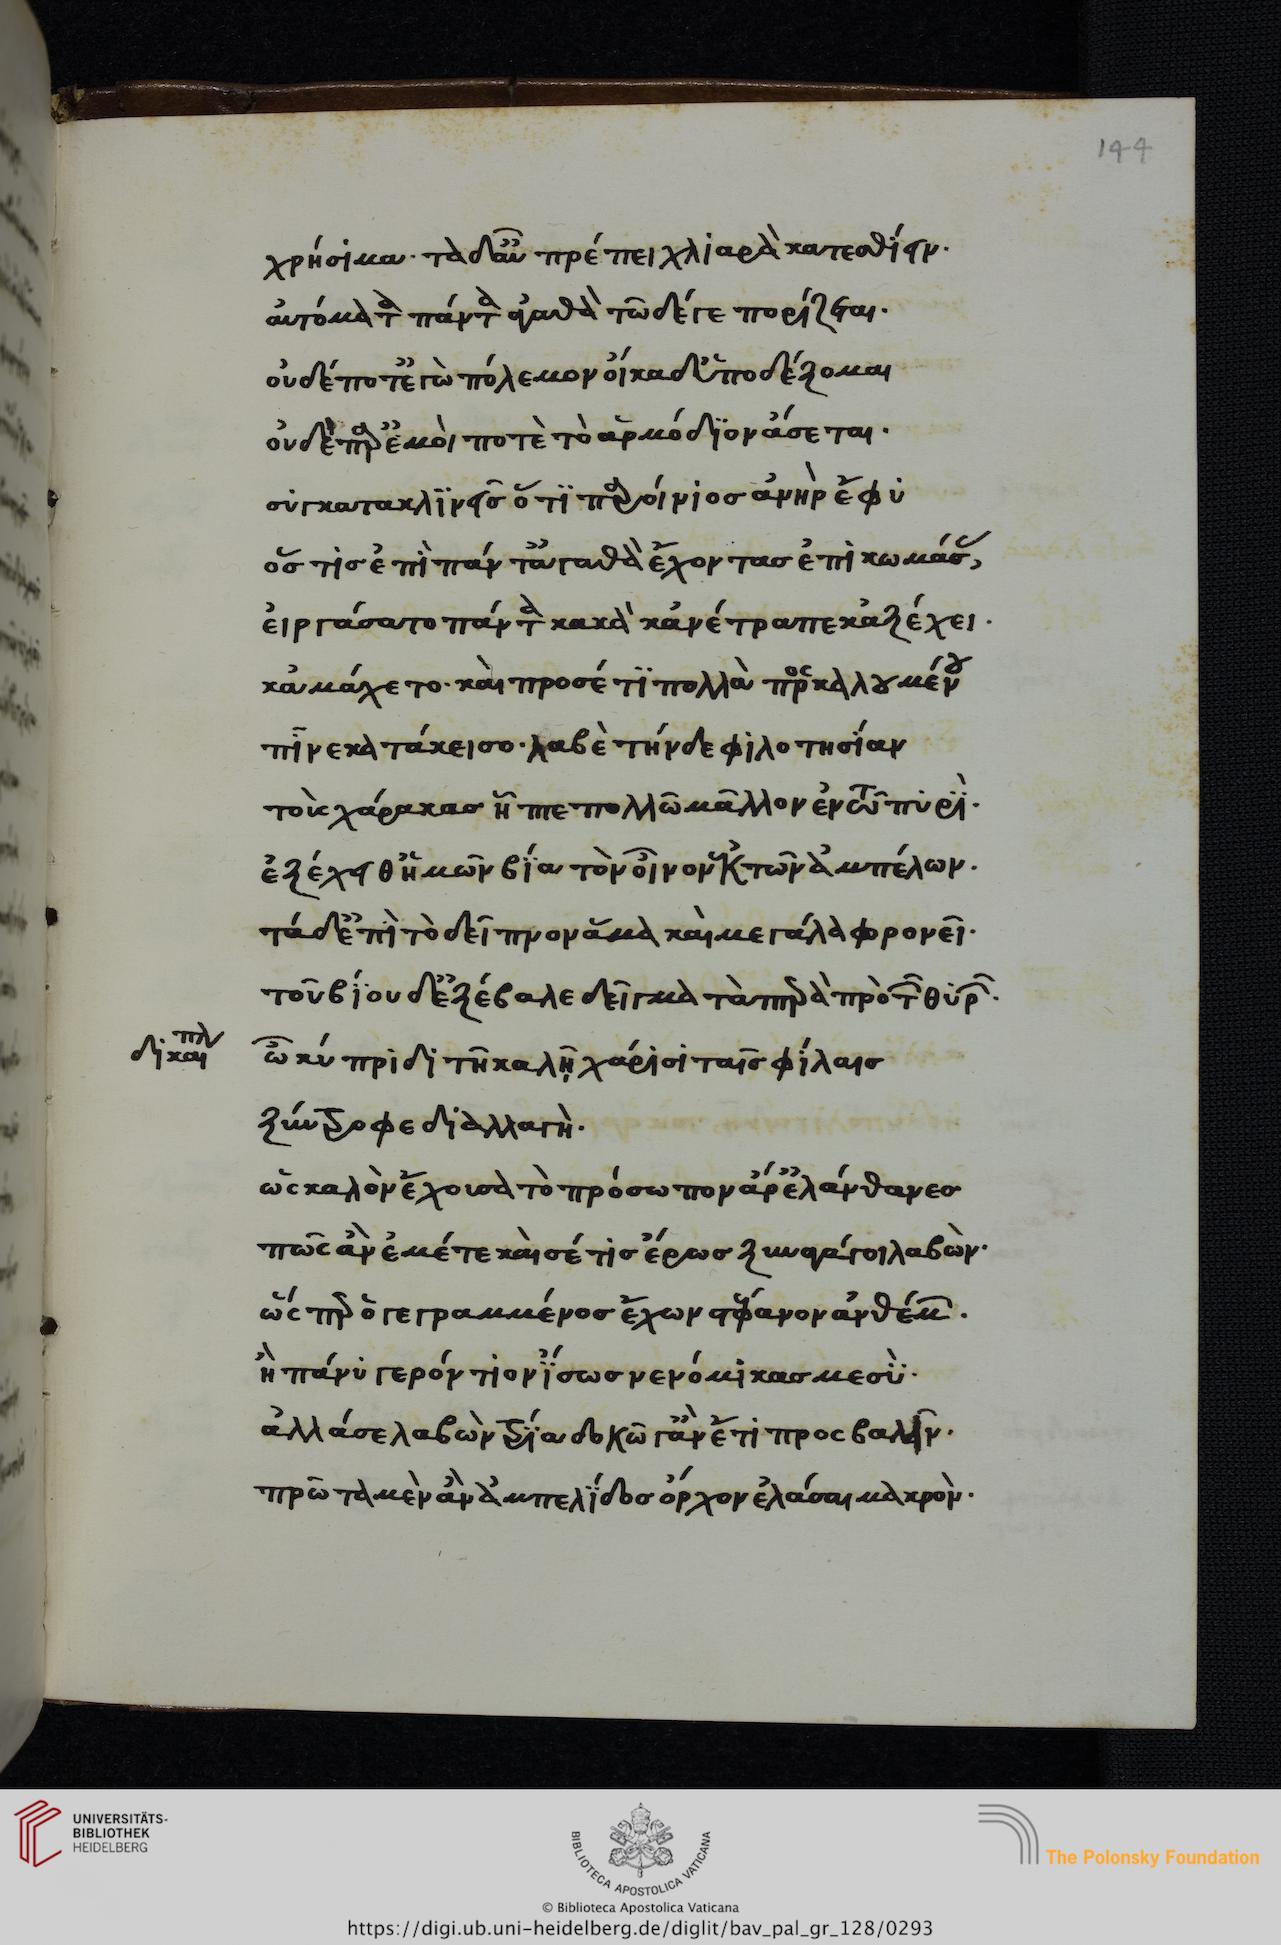 144
χρήσιμα· τὰ δ' αὖ πρέπει χλιαρὰ κατεσθίειν·
αὐτόματα πάντ' ἀγαθὰ τῶδέ γε πορίζεται·
οὐδέποτ' ἐγὼ πόλεμον οἴκαδ' ὑποδέξομαι
οὐδὲ παρ' ἐμοί ποτε τὸ ἁρμόδιον ἄσεται·
συγκατακλινεὶς ὅτι παροίνιος ἀνὴρ ἔφυ
ὅστις ἐπὶ πάντ' ἀγαθὰ ἔχοντας ἐπικωμάσας,
εἰργάσατο πάντα κακὰ κἀνέτραπε κἀξέχει·
κἀμάχετο· καὶ προσέτι πολλὰ προσκαλουμένου
πῖνε κατάκεισο· λαβὲ τήνδε φιλοτησίαν
τὰς χάρακας ἧπτε πολλῶ μᾶλλον ἐν τῶ πυρί·
ἐξέχει θ' ἡμῶν βία τὸν οἶνον ἐκ τῶν ἀμπέλων·
τάδ' ἐπὶ τὸ δεῖπνον ἅμα καὶ μεγάλα φρονεῖ·
τοῦ βίου δ' ἐξέβαλε δεῖγμα τὰ πτερὰ πρὸ τῶν θυρῶν·
δικαι πολ
ὦ κύπριδι τῆ καλῆ χάρισι ταῖς φίλαις
ξύντροφε διαλλαγή·
ὡς καλὸν ἔχουσα τὸ πρόσωπον ἄρ' ἐλάνθανες
πῶς ἂν ἐμέ τε καὶ σέ τις ἔρως ξυναγάγοι λαβών·
ὥσπερ ὁ γεγραμμένος ἔχων στέφανον ἀνθέμων·
ἢ πάνυ γερόντιον ἴσως νενόμικας με σύ·
ἀλλά σε λαβὼν τρία δοκῶ γ' ἂν ἔτι προσβαλεῖν·
πρῶτα μὲν ἂν ἀμπελίδος ὄρχον ἐλάσαι μακρὸν·
UNIVERSITÄTS-
BIBLIOTHEK
HEIDELBERG
BIBLIOTECA APOSTOLICA VATICANA
The Polonsky Foundation
© Biblioteca Apostolica Vaticana
https://digi.ub.uni-heidelberg.de/diglit/bav_pal_gr_128/0293